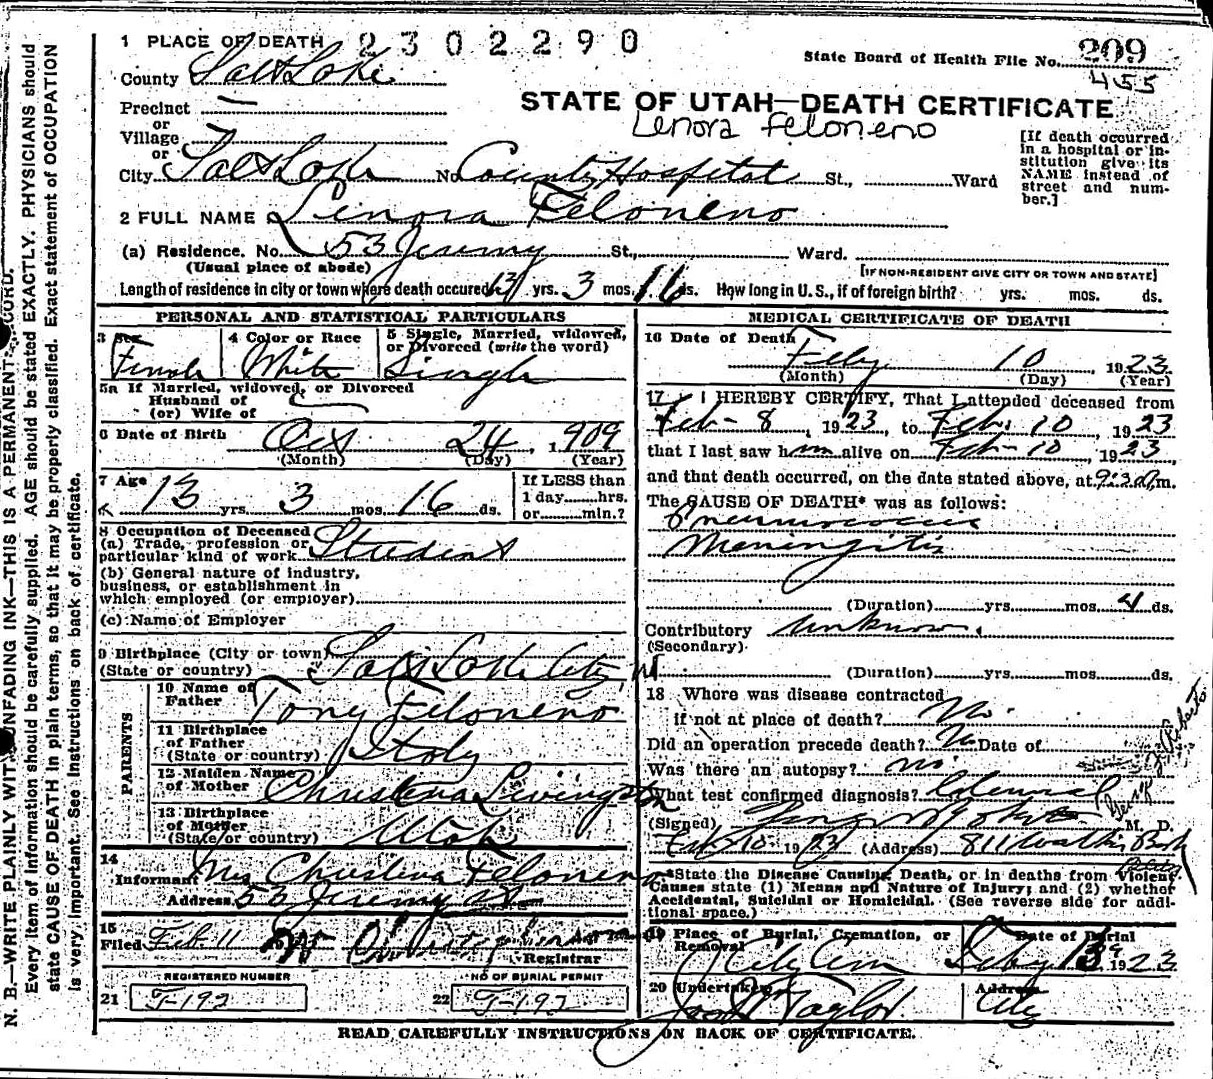 1 PLACE OF DEATH 2302290
State Board of Health File No. 209
455
County Salt Lake
STATE OF UTAH—DEATH CERTIFICATE
Precinct —
or
Village
or
Lenora Feloneno
[If death occurred
in a hospital or in-
stitution give its
NAME instead of
street and num-
ber.]
City Salt Lake No County Hospital St., Ward
2 FULL NAME Lenora Feloneno
(a) Residence. No. 53 Jeremy St., Ward.
(Usual place of abode)
[IF NON-RESIDENT GIVE CITY OR TOWN AND STATE]
Length of residence in city or town where death occured 13 yrs. 3 mos. 16 ds. How long in U. S., if of foreign birth? yrs. mos. ds.
PERSONAL AND STATISTICAL PARTICULARS
3 Sex 4 Color or Race 5 Single, Married, widowed,
or Divorced (write the word)
Female White Single
5a If Married, widowed, or Divorced
Husband of
(or) Wife of
6 Date of Birth Oct 24, 1909
(Month) (Day) (Year)
7 Age 13 yrs. 3 mos. 16 ds.
If LESS than
1 day hrs.
or min.?
8 Occupation of Deceased
(a) Trade, profession or
particular kind of work Student
(b) General nature of industry,
business, or establishment in
which employed (or employer)
(c) Name of Employer
9 Birthplace (City or town)
(State or country) Salt Lake City, Ut
PARENTS
10 Name of
Father Tony Feloneno
11 Birthplace
of Father
(State or country) Italy
12 Maiden Name
of Mother Christena Livingston
13 Birthplace
of Mother
(State or country) Utah
14
Informant Mrs Christena Feloneno
Address 53 Jeremy St
15
Filed Feb. 11
Registrar
REGISTERED NUMBER NO OF BURIAL PERMIT
21 T-192 22 T-192
MEDICAL CERTIFICATE OF DEATH
16 Date of Death
Feby 10, 1923
(Month) (Day) (Year)
17 I HEREBY CERTIFY, That I attended deceased from
Feb- 8, 1923, to Feb. 10, 1923
that I last saw h alive on Feb- 10, 1923,
and that death occurred, on the date stated above, at m.
The CAUSE OF DEATH* was as follows:
Pneumococcus
Meningitis
(Duration) yrs. mos. 4 ds.
Contributory Unknown.
(Secondary)
(Duration) yrs. mos. ds.
18 Where was disease contracted
if not at place of death? No.
Did an operation precede death? No Date of
Was there an autopsy? no
What test confirmed diagnosis?
(Signed) M. D.
Feb 10. 1923 (Address) 811
*State the Disease Causing Death, or in deaths from Violent
Causes state (1) Means and Nature of Injury; and (2) whether
Accidental, Suicidal or Homicidal. (See reverse side for addi-
tional space.)
19 Place of Burial, Cremation, or
Removal
Date of Burial
City Cem Feby 13 1923
20 Undertaker Address
Taylor City
READ CAREFULLY INSTRUCTIONS ON BACK OF CERTIFICATE.
N. B.—WRITE PLAINLY WITH UNFADING INK—THIS IS A PERMANENT RECORD.
Every item of information should be carefully supplied. AGE should be stated EXACTLY. PHYSICIANS should
state CAUSE OF DEATH in plain terms, so that it may be properly classified. Exact statement of OCCUPATION
is very important. See instructions on back of certificate.